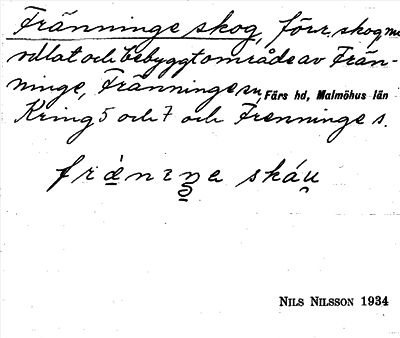 Fränninge skog, förr skog m
odlat och bebyggt område av Frän-
ninge, Fränninge sn, Färs hd, Malmöhus län
Kring 5 och 7 och Frenninge s.
NILS NILSSON 1934